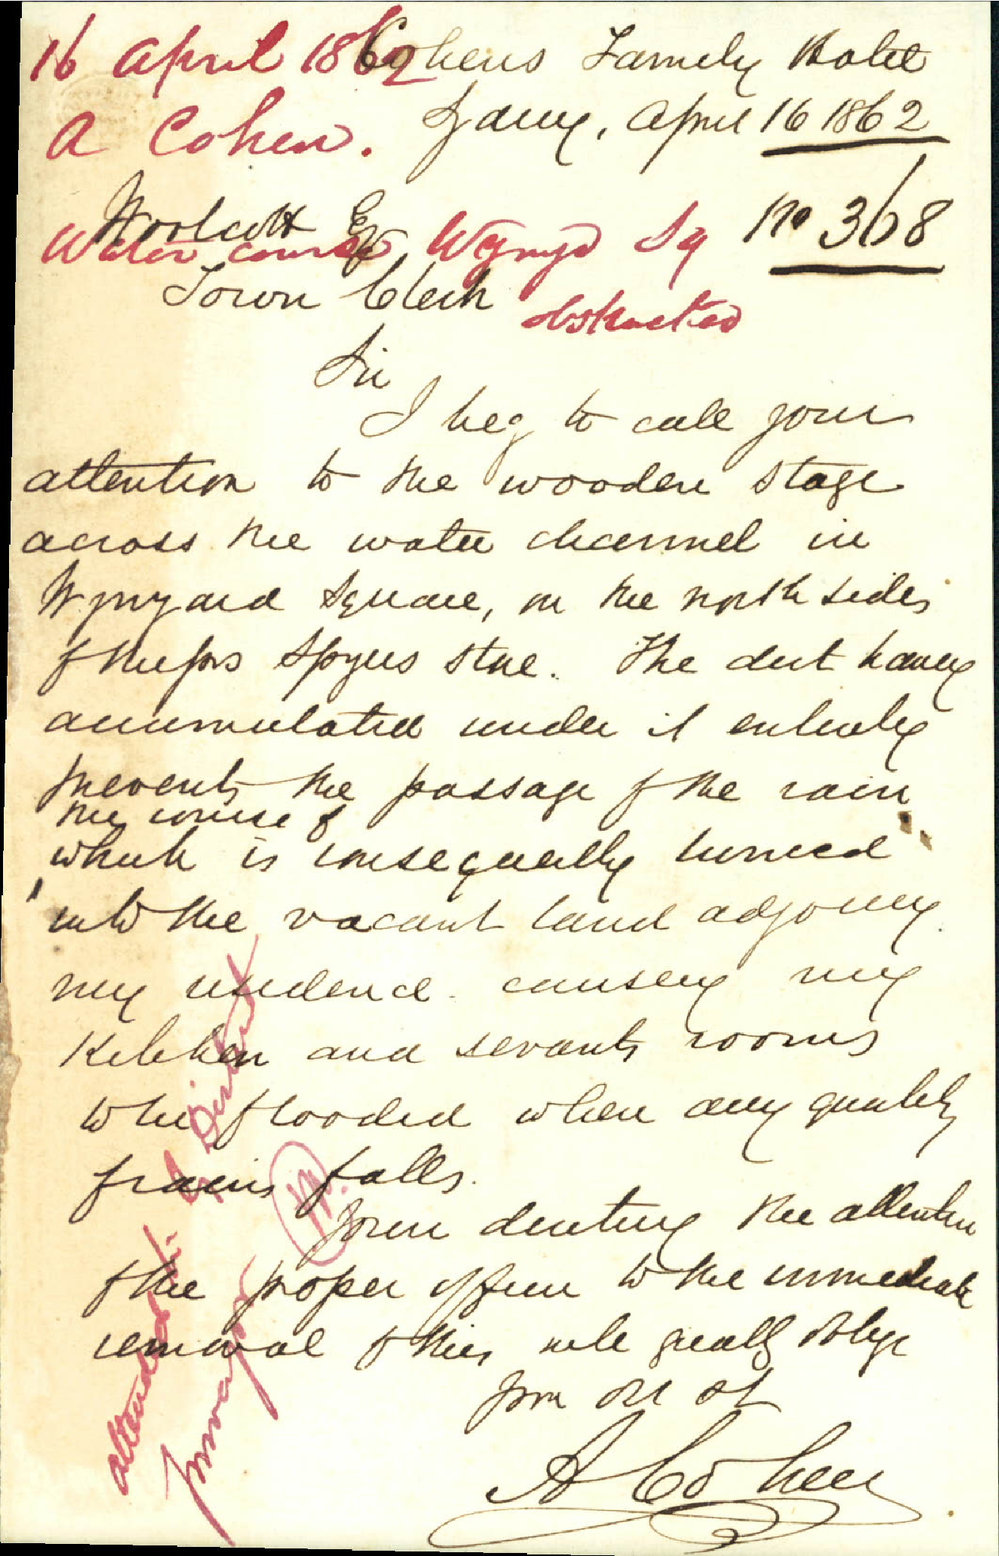 16 April 1862
Cohens Family Hotel
A Cohen.
Sydney, April 16 1862
Woolcott Esq
No 368
Water course Wynyd Sq
Town Clerk
obstructed
Sir
I beg to call your
attention to the wooden stage
across the water channel in
Wynyard Square, on the north side
of Spyers Store. The dirt having
accumulated under it entirely
prevents the passage of the rain
the course of
which is consequently turned
into the vacant land adjoining
my residence causing my
Kitchen and servants rooms
to be flooded when any quantity
of rain falls.
Your directing the attention
of the proper officer to the immediate
removal of this will greatly oblige
Your Obt St
A Cohen
attended to